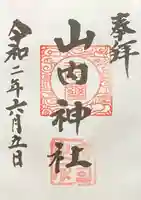 奉拝
山内神社
令和二年六月五日